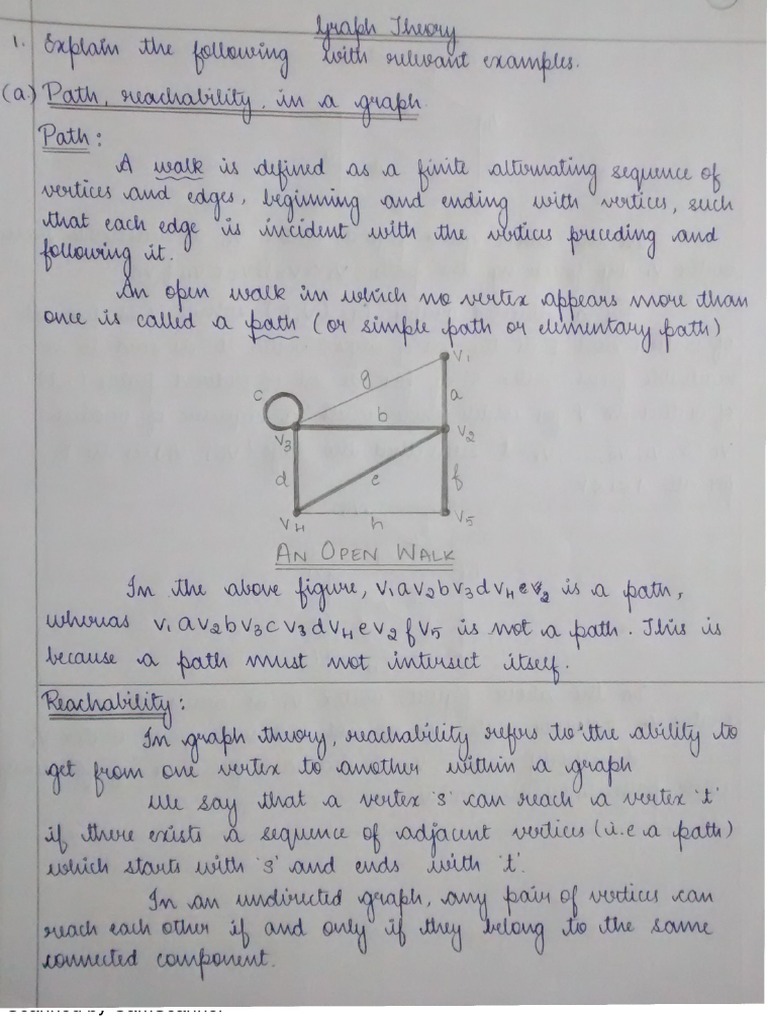 Graph Theory
1. Explain the following with relevant examples.
(a.) Path, reachability, in a graph.
Path:
A walk is defined as a finite alternating sequence of
vertices and edges, beginning and ending with vertices, such
that each edge is incident with the vertices preceding and
following it.
An open walk in which no vertex appears more than
once is called a path (or simple path or elementary path)
V1
g
c
a
b
V3
V2
d
e
f
V4
h
V5
AN OPEN WALK
In the above figure, V1 a V2 b V3 d V4 e V2 is a path,
wheras V1 a V2 b V3 c V3 d V4 e V2 f V5 is not a path. This is
because a path must not intersect itself.
Reachability:
In graph theory, reachability refers to the ability to
get from one vertex to another within a graph
We say that a vertex 's' can reach a vertex 't'
if there exists a sequence of adjacent vertices (i.e a path)
which starts with 's' and ends with 't'.
In an undirected graph, any pair of vertices can
reach each other if and only if they belong to the same
connected component.
Scanned by CamScanner